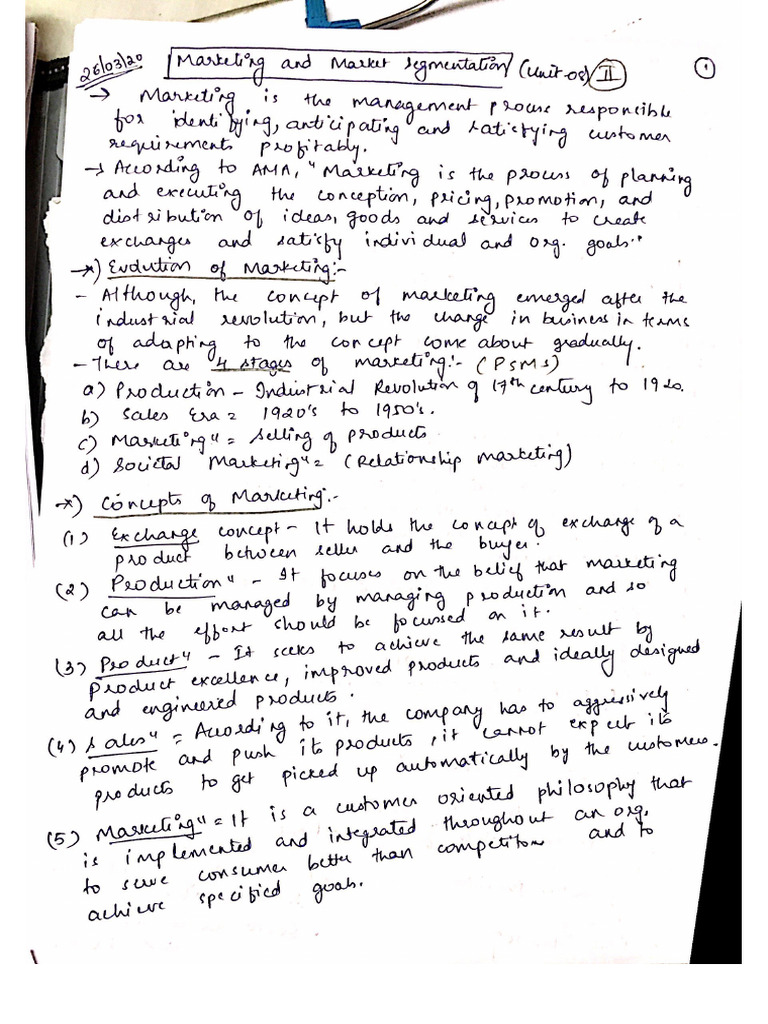 26/03/20 Marketing and Market Segmentation (Unit-08) II 1
→ Marketing is the management process responsible
for identifying, anticipating and satisfying customer
requirements profitably.
→ According to AMA, "Marketing is the process of planning
and executing the conception, pricing, promotion, and
distribution of ideas, goods and services to create
exchanges and satisfy individual and org. goals"
→*) Evolution of Marketing:-
- Although, the concept of marketing emerged after the
industrial revolution, but the change in business in terms
of adapting to the concept come about gradually.
- There are 4 stages of marketing:- (PSMS)
a) Production - Industrial Revolution of 17th century to 1920.
b) Sales Era = 1920's to 1950's.
c) Marketing " = Selling of products
d) Societal Marketing " = (Relationship marketing)
→*) Concepts of Marketing:-
(1) Exchange concept - It holds the concept of exchange of a
product between seller and the buyer.
(2) Production " - It focuses on the belief that marketing
can be managed by managing production and so
all the effort should be focussed on it.
(3) Product " - It seeks to achieve the same result by
product excellence, improved products and ideally designed
and engineered products.
(4) Sales " = According to it, the company has to aggressively
promote and push its products, it cannot expect its
products to get picked up automatically by the customers.
(5) Marketing " = It is a customer oriented philosophy that
is implemented and integrated throughout an org.
to serve consumer better than competitors and to
achieve specified goals.